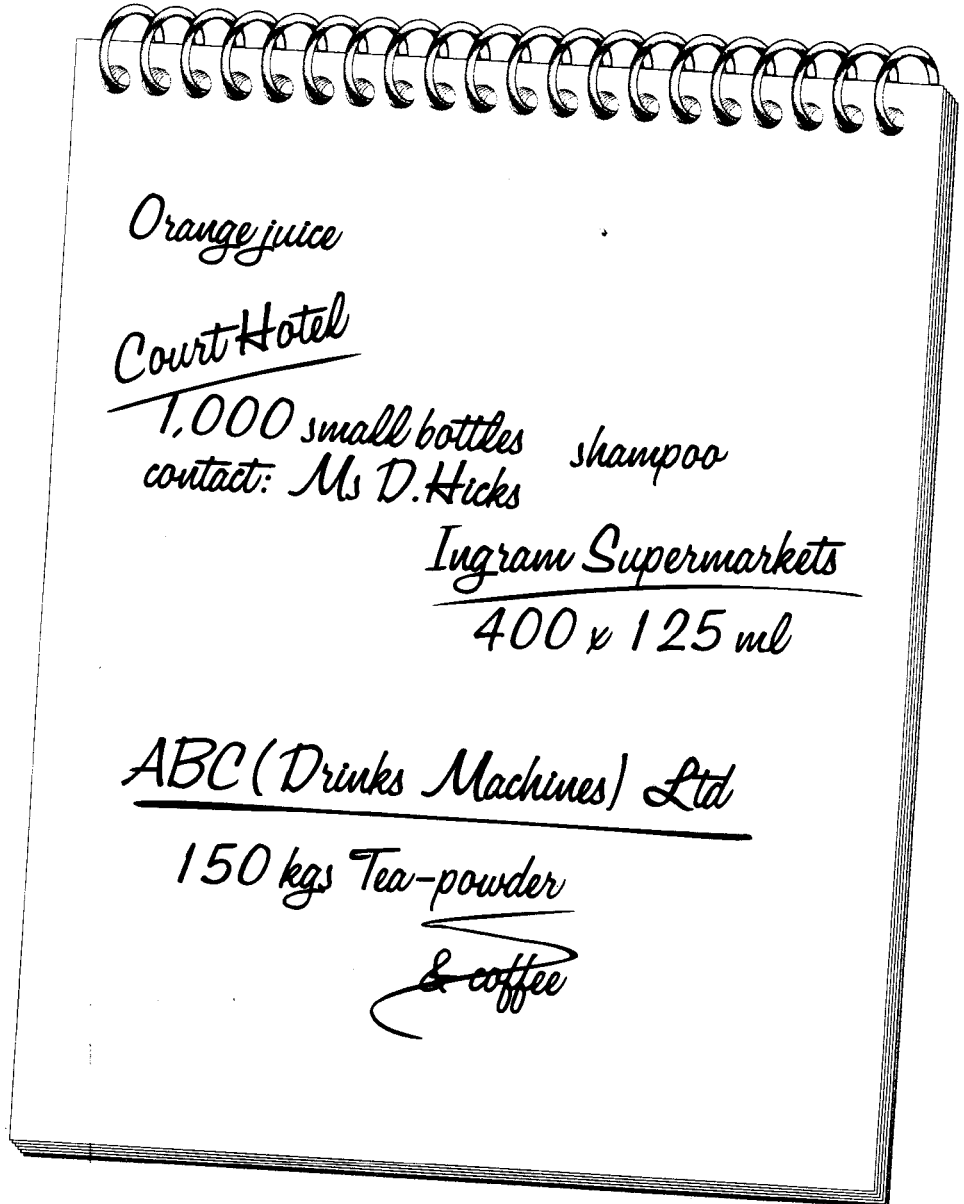 Orange juice
Court Hotel
1,000 small bottles shampoo
contact: Ms D. Hicks
Ingram Supermarkets
400 x 125 ml
ABC (Drinks Machines) Ltd
150 kgs Tea-powder
& coffee